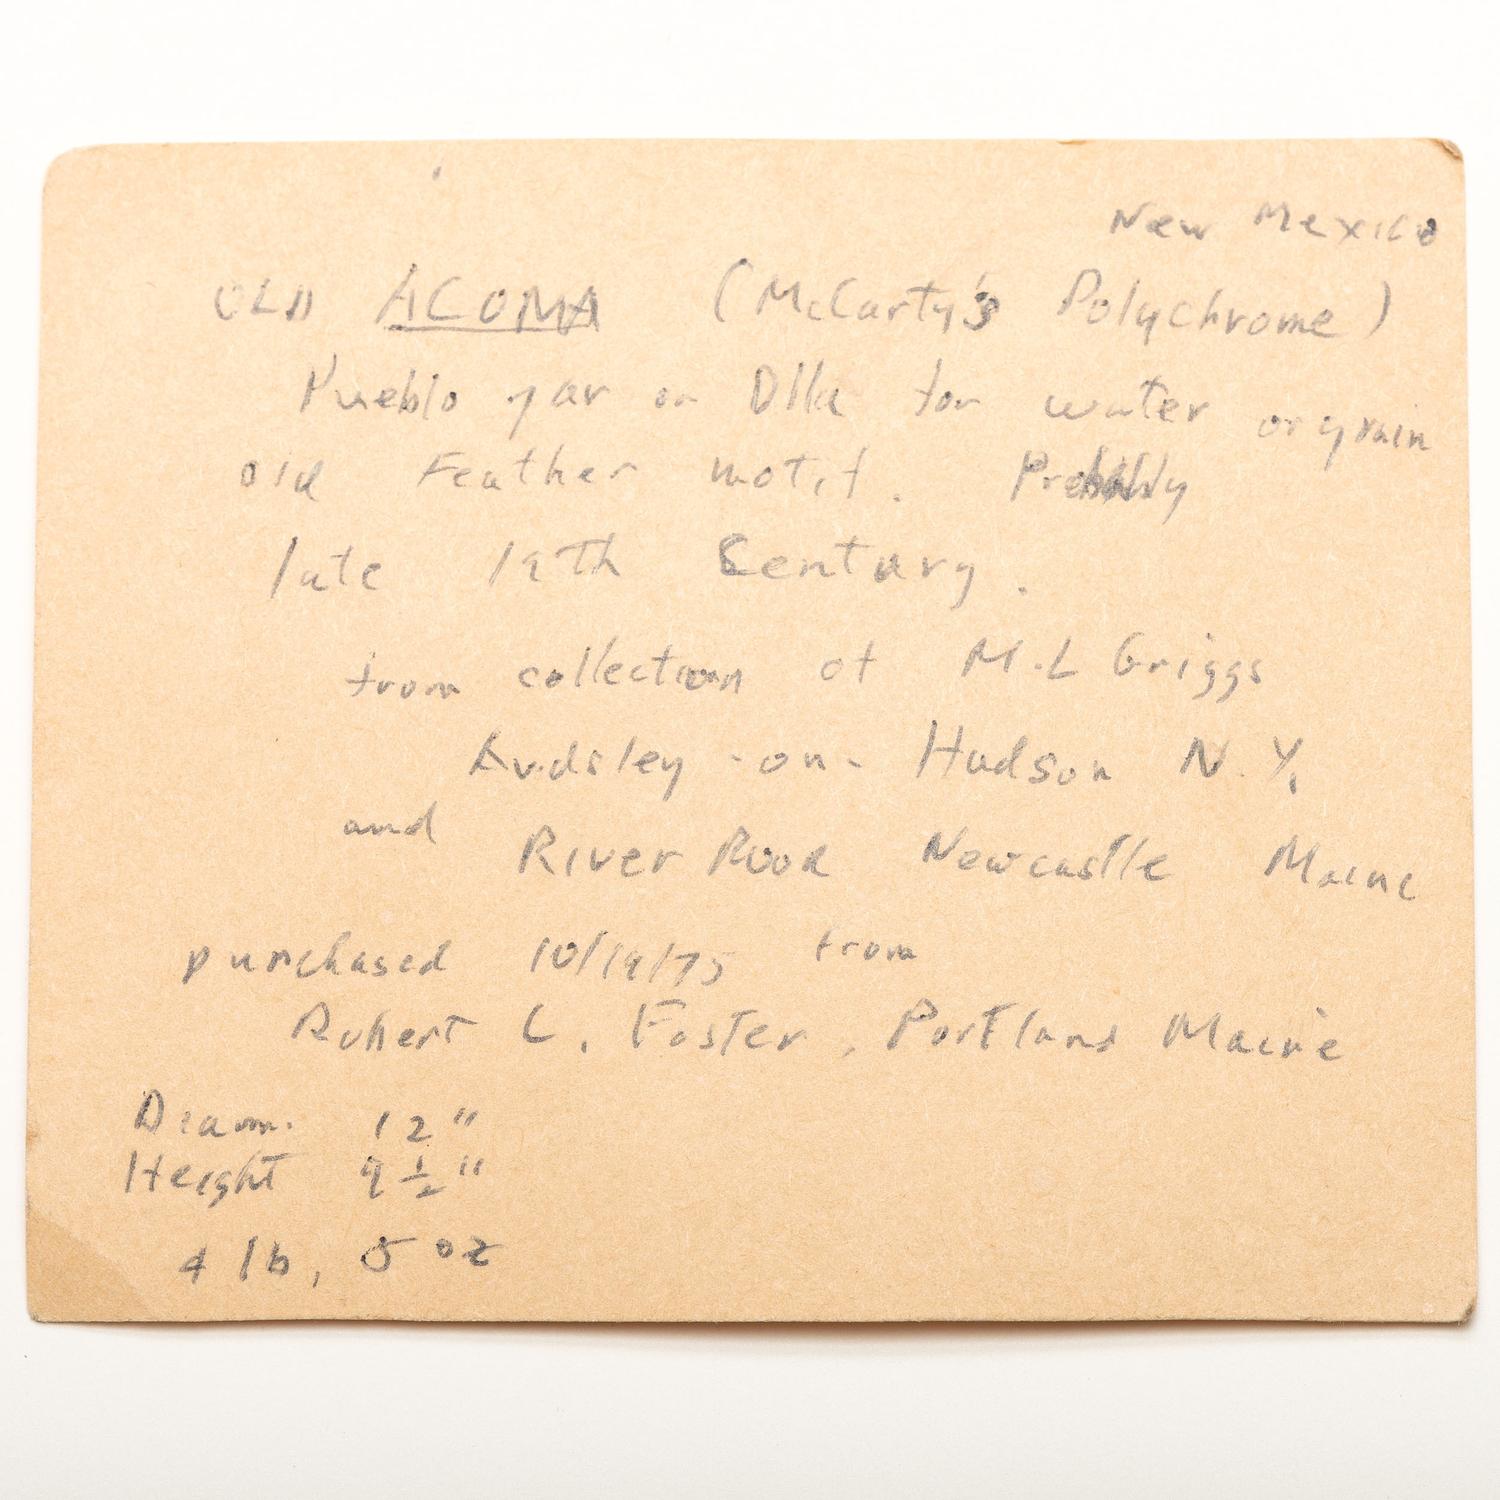 New Mexico
OLD ACOMA (McCarty's Polychrome)
Pueblo jar or Olla for water or grain
old Feather motif. Probably
late 19th Century.
from collection of M.L Griggs
Ardsley-on-Hudson N.Y.
and River Road Newcastle Maine
purchased 10/19/75 from
Robert L. Foster, Portland Maine
Diam. 12"
Height 9 1/2"
4 lb, 5 oz